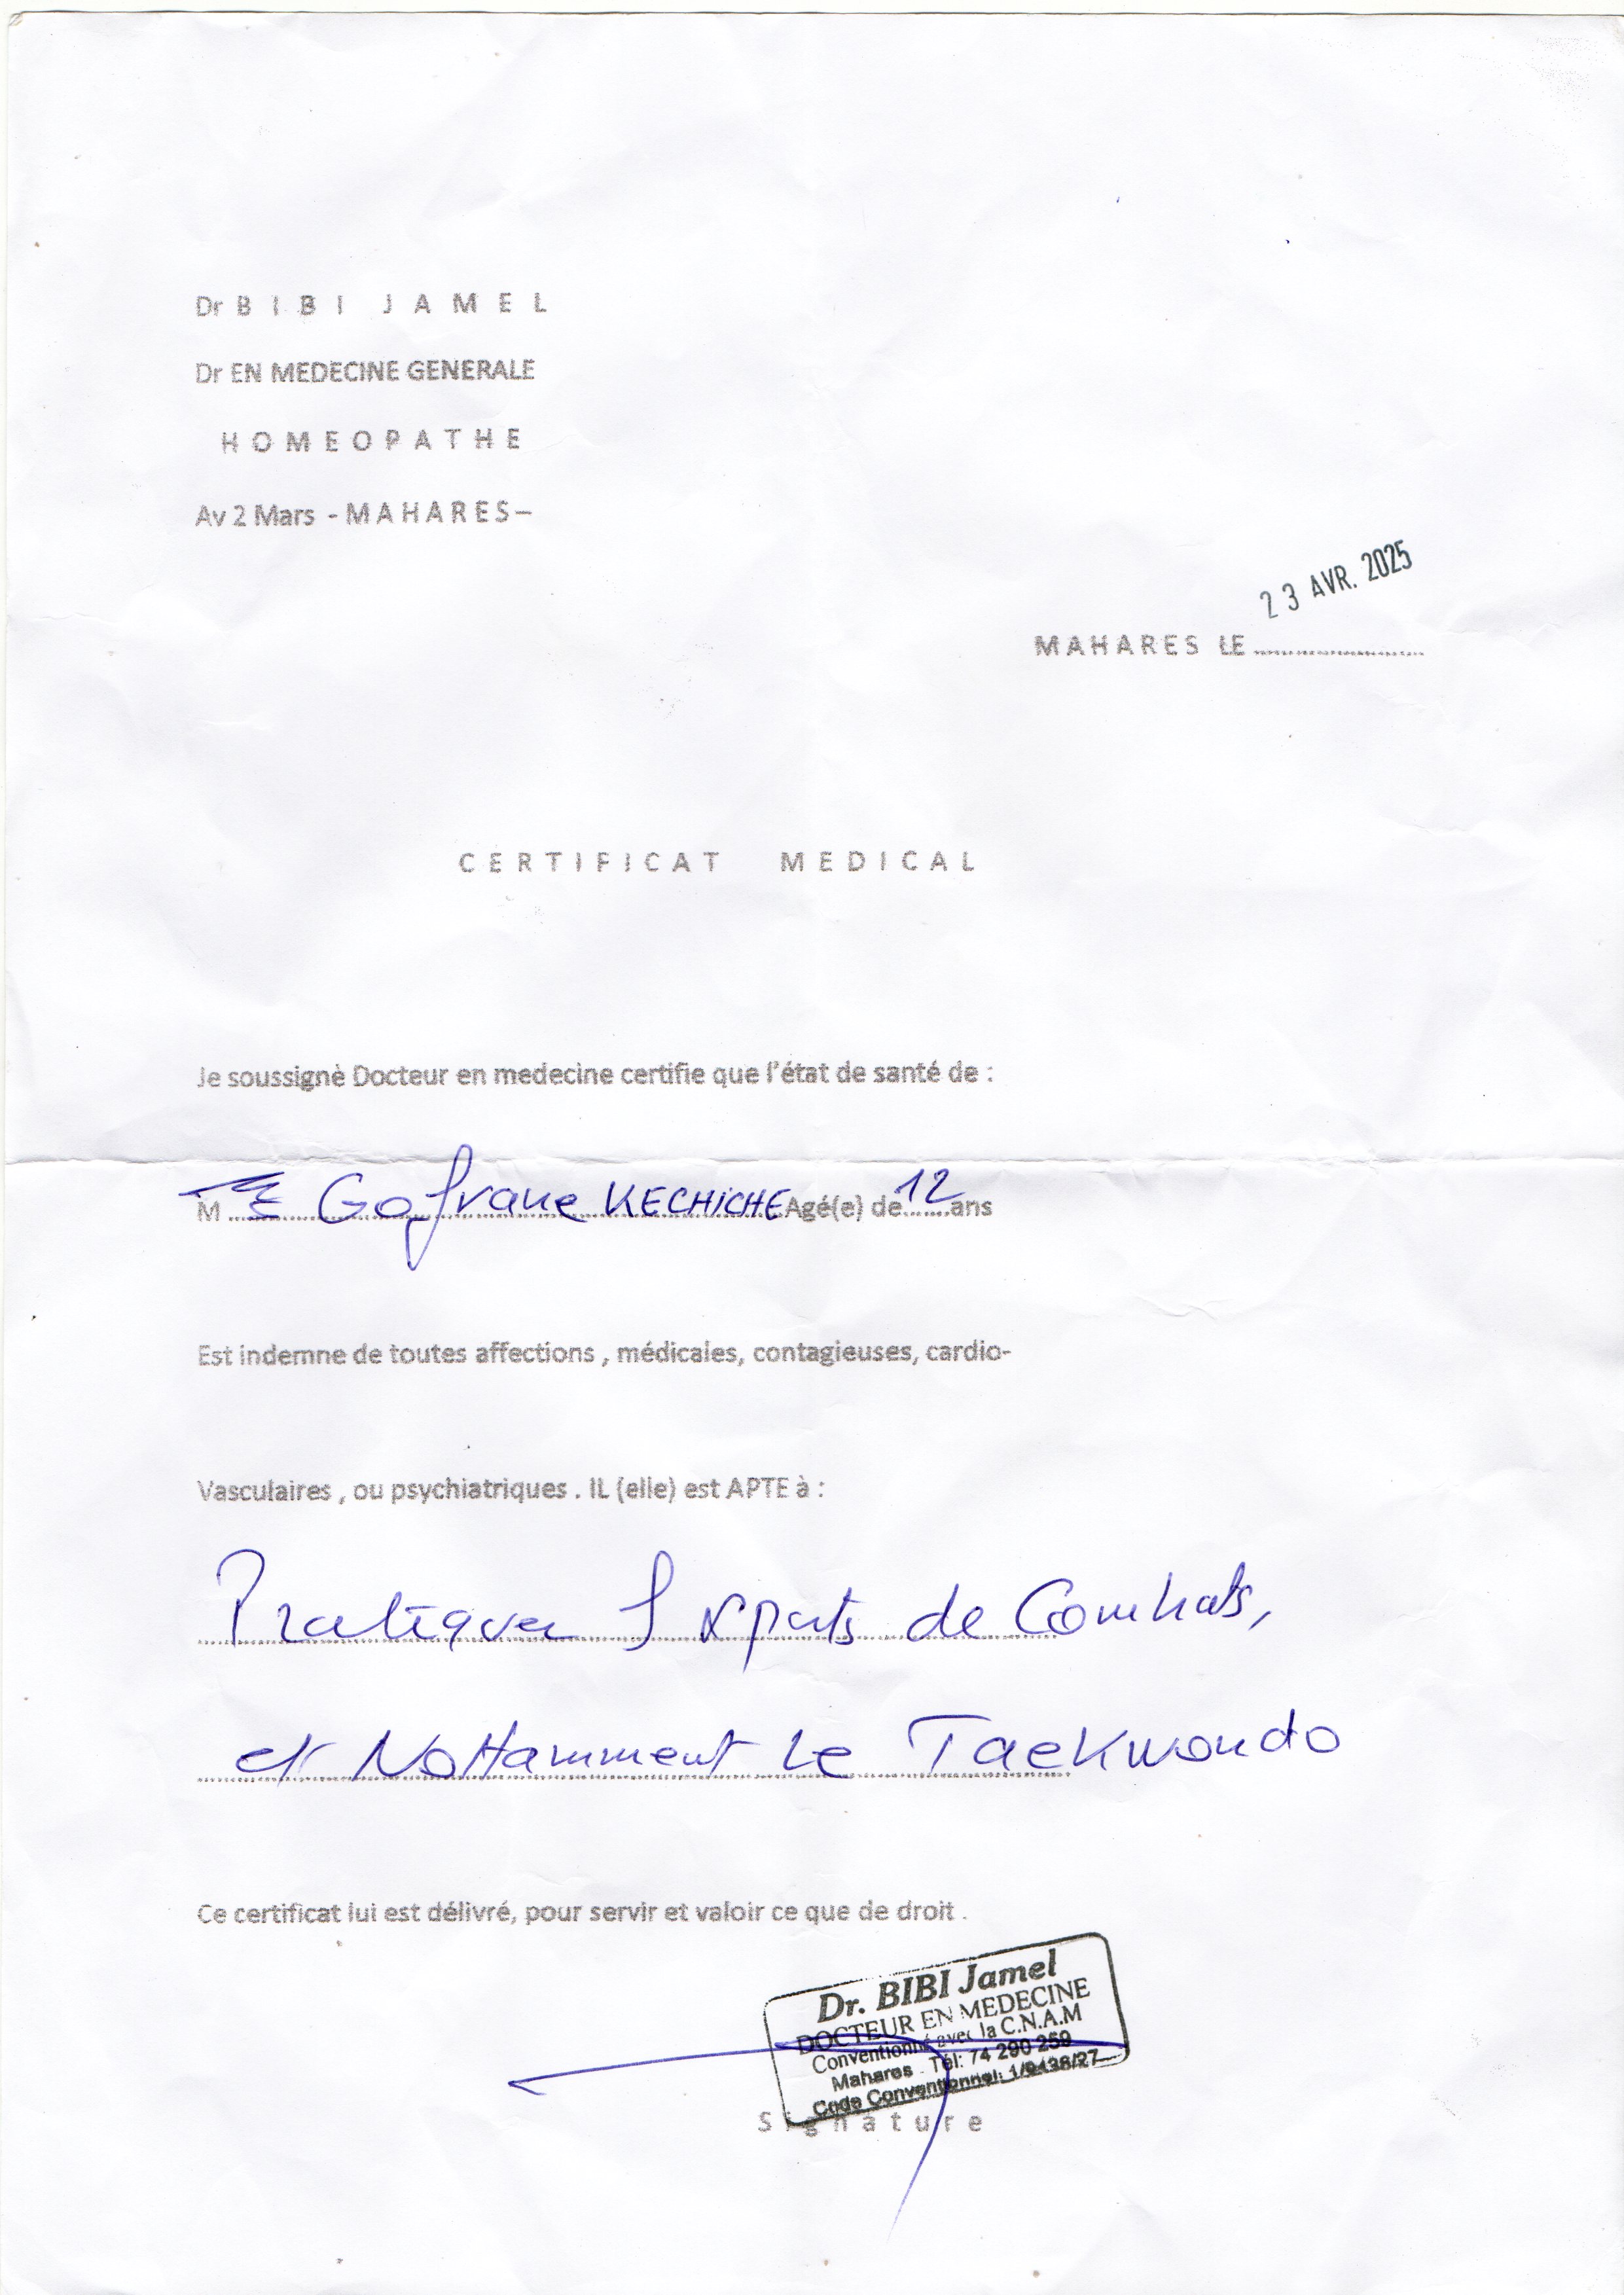 Dr B I B I J A M E L
Dr EN MEDECINE GENERALE
H O M E O P A T H E
Av 2 Mars - M A H A R E S –
23 AVR. 2025
MAHARES LE
CERTIFICAT MEDICAL
Je soussignè Docteur en medecine certifie que l'état de santé de :
M Gofrane KECHICHE Agé(e) de 12 ans
Est indemne de toutes affections , médicales, contagieuses, cardio-
Vasculaires , ou psychiatriques . IL (elle) est APTE à :
Pratiquer sports de Combats,
et Nottamment Le Taekwondo
Ce certificat lui est délivré, pour servir et valoir ce que de droit .
Dr. BIBI Jamel
DOCTEUR EN MEDECINE
Conventionné avec la C.N.A.M
Mahares . Tél: 74 290 259
Code Conventionnel: 1/9438/27
Signature